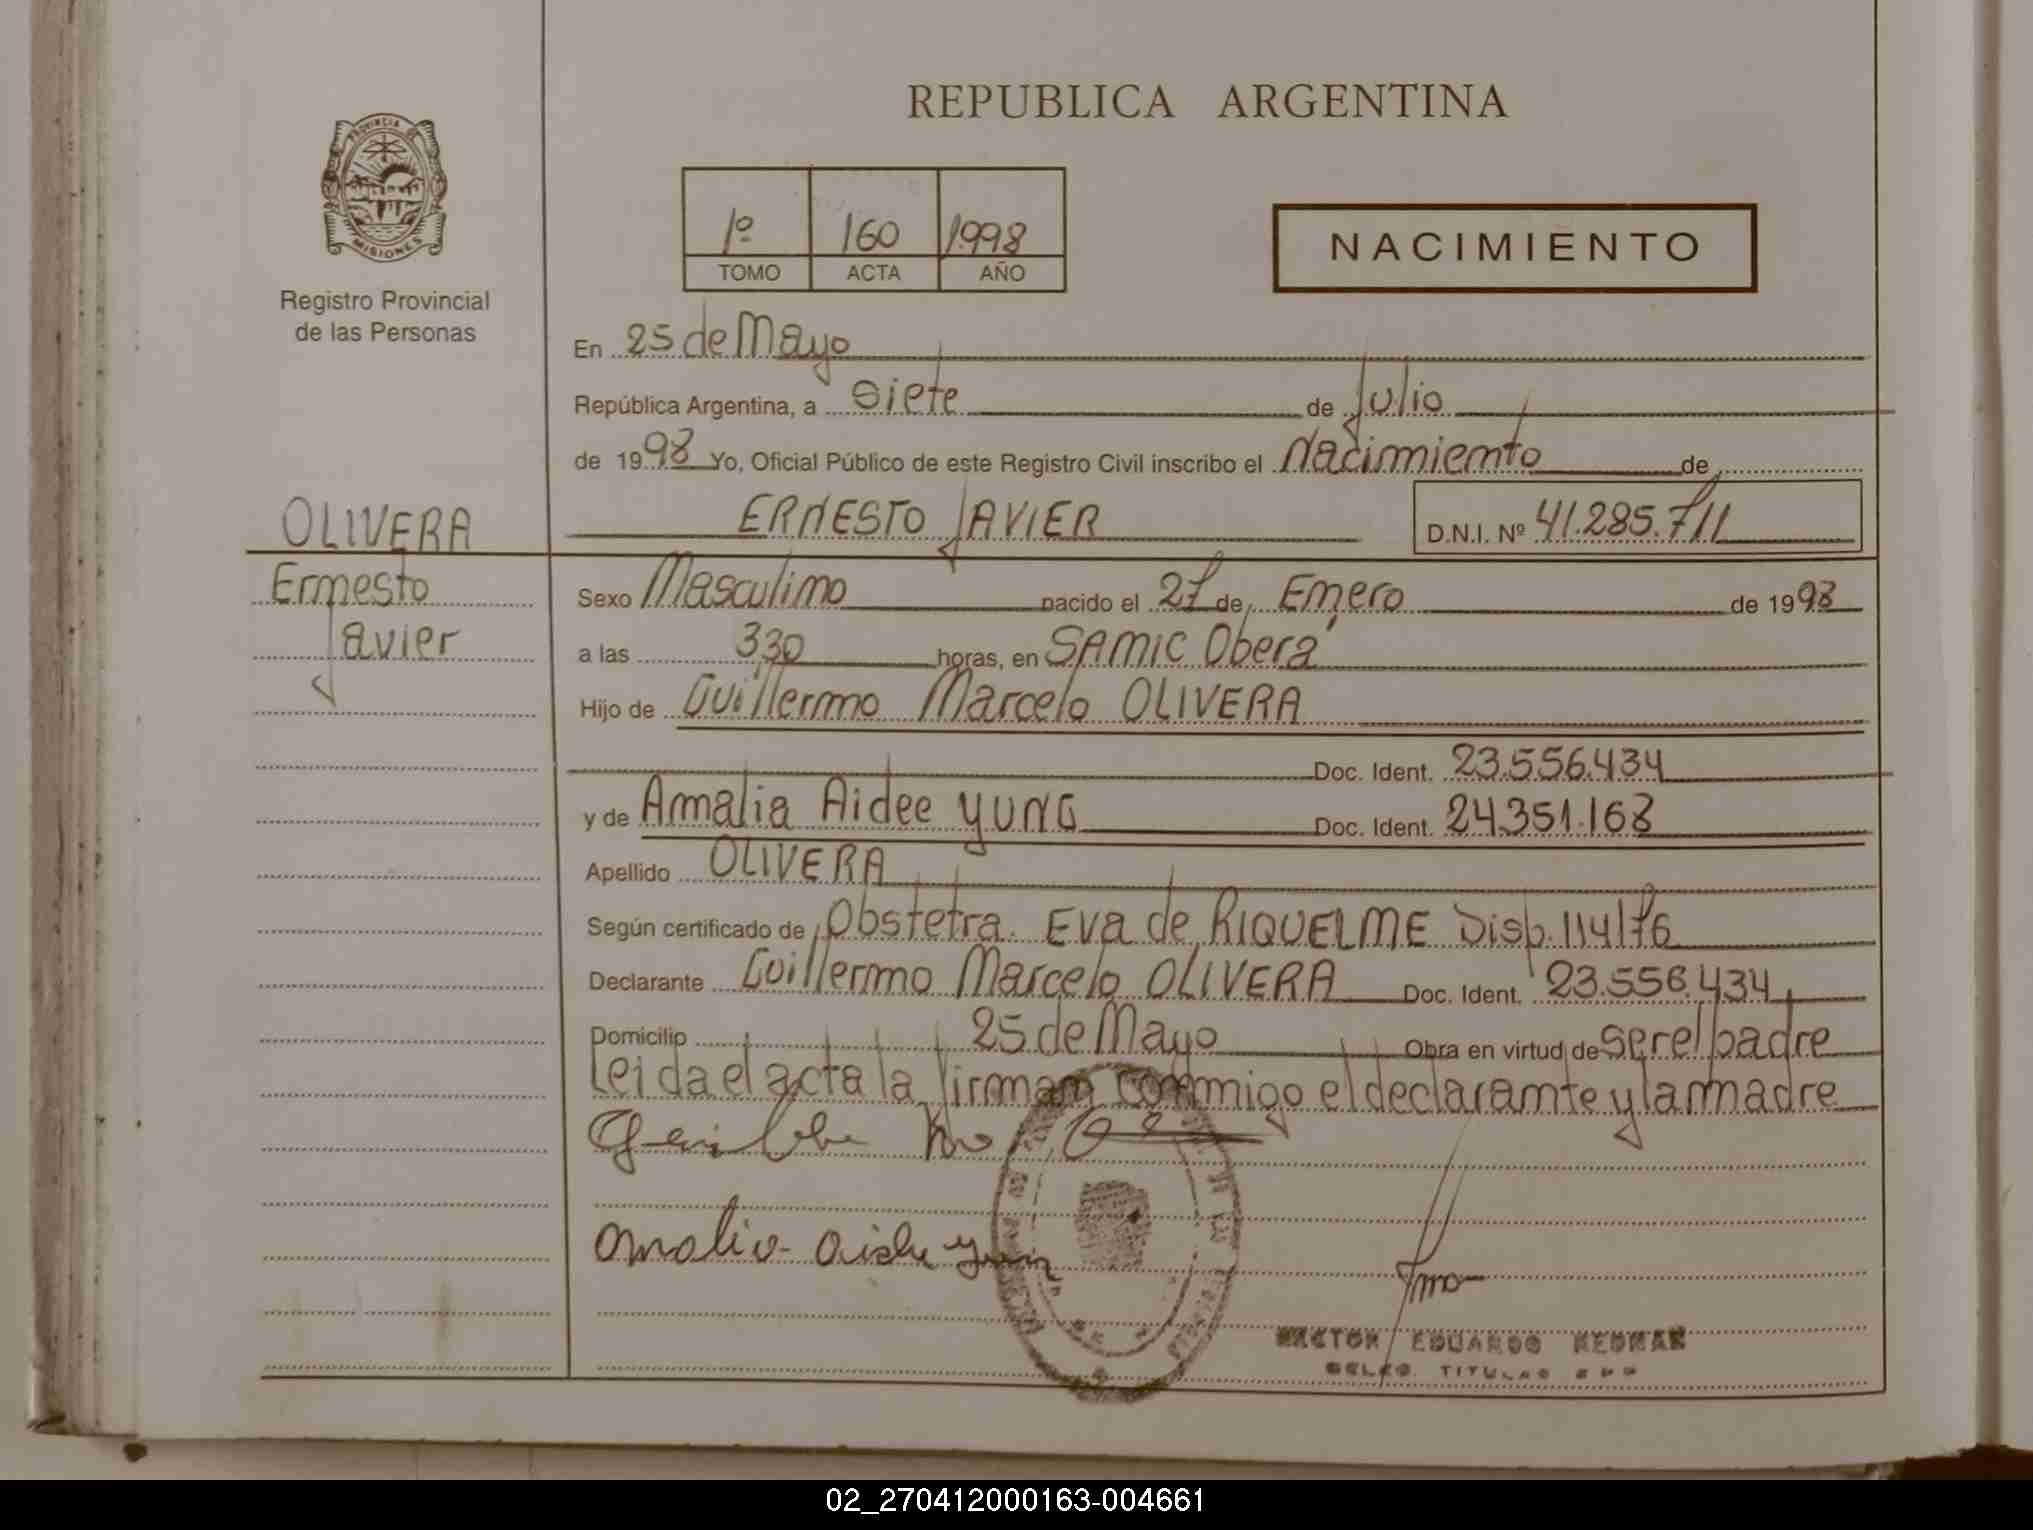 REPUBLICA ARGENTINA
PROVINCIA DE
MISIONES
Registro Provincial
de las Personas
1º 160 1998
TOMO ACTA AÑO
NACIMIENTO
En 25 de Mayo
República Argentina, a siete de Julio
de 1998 Yo, Oficial Público de este Registro Civil inscribo el Nacimiento de
OLIVERA
Ernesto
Javier
ERNESTO JAVIER D.N.I. Nº 41.285.711
Sexo Masculino nacido el 27 de Enero de 1998
a las 330 horas, en SAMIC Oberá
Hijo de Guillermo Marcelo OLIVERA
Doc. Ident. 23.556.434
y de Amalia Aidee YUNG Doc. Ident. 24.351.168
Apellido OLIVERA
Según certificado de Obstetra. Eva de RIQUELME Disp. 114/76
Declarante Guillermo Marcelo OLIVERA Doc. Ident. 23.556.434
Domicilio 25 de Mayo Obra en virtud de ser el padre
Leida el acta la firman conmigo el declarante y la madre
Amalia Aidee Yung
HECTOR EDUARDO
TITULAR
02_270412000163-004661